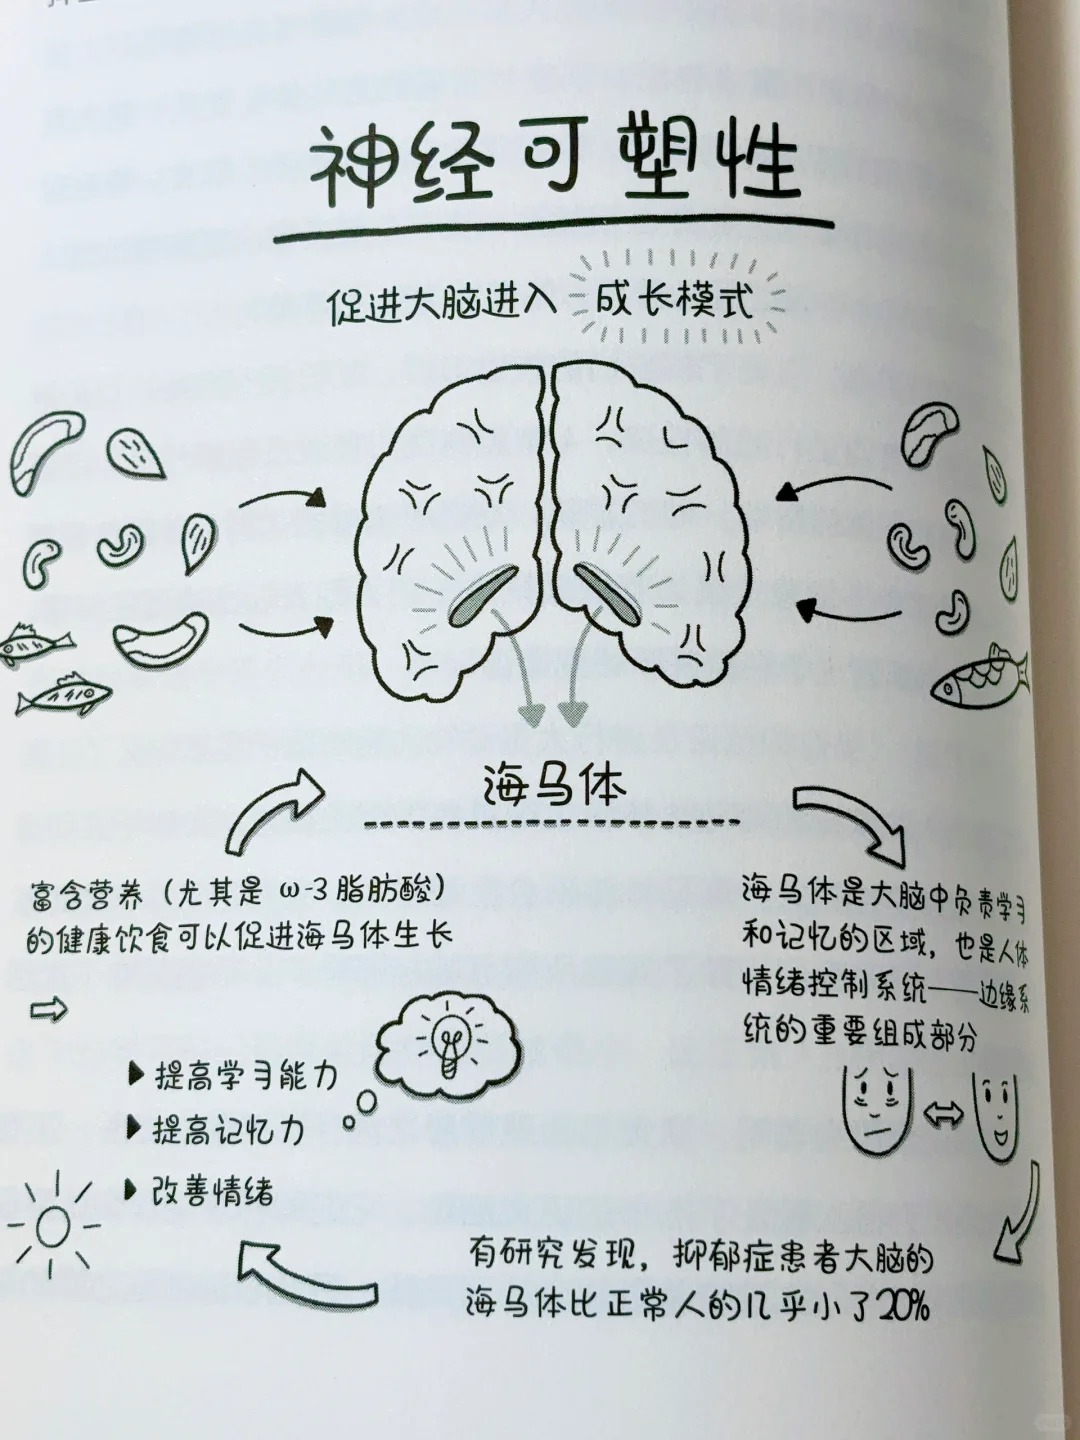 神经可塑性
促进大脑进入 成长模式
海马体
富含营养（尤其是 ω-3脂肪酸）
的健康饮食可以促进海马体生长
海马体是大脑中负责学习
和记忆的区域，也是人体
情绪控制系统——边缘系
统的重要组成部分
提高学习能力
提高记忆力
改善情绪
有研究发现，抑郁症患者大脑的
海马体比正常人的几乎小了20%